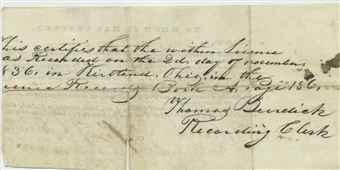 This certifies that the within License
as Recorded on the 2d, day of november
836, in Kirtland, Ohio, in the
icense Records Book A, Page 186,
Thomas Burdick
Recording Clerk